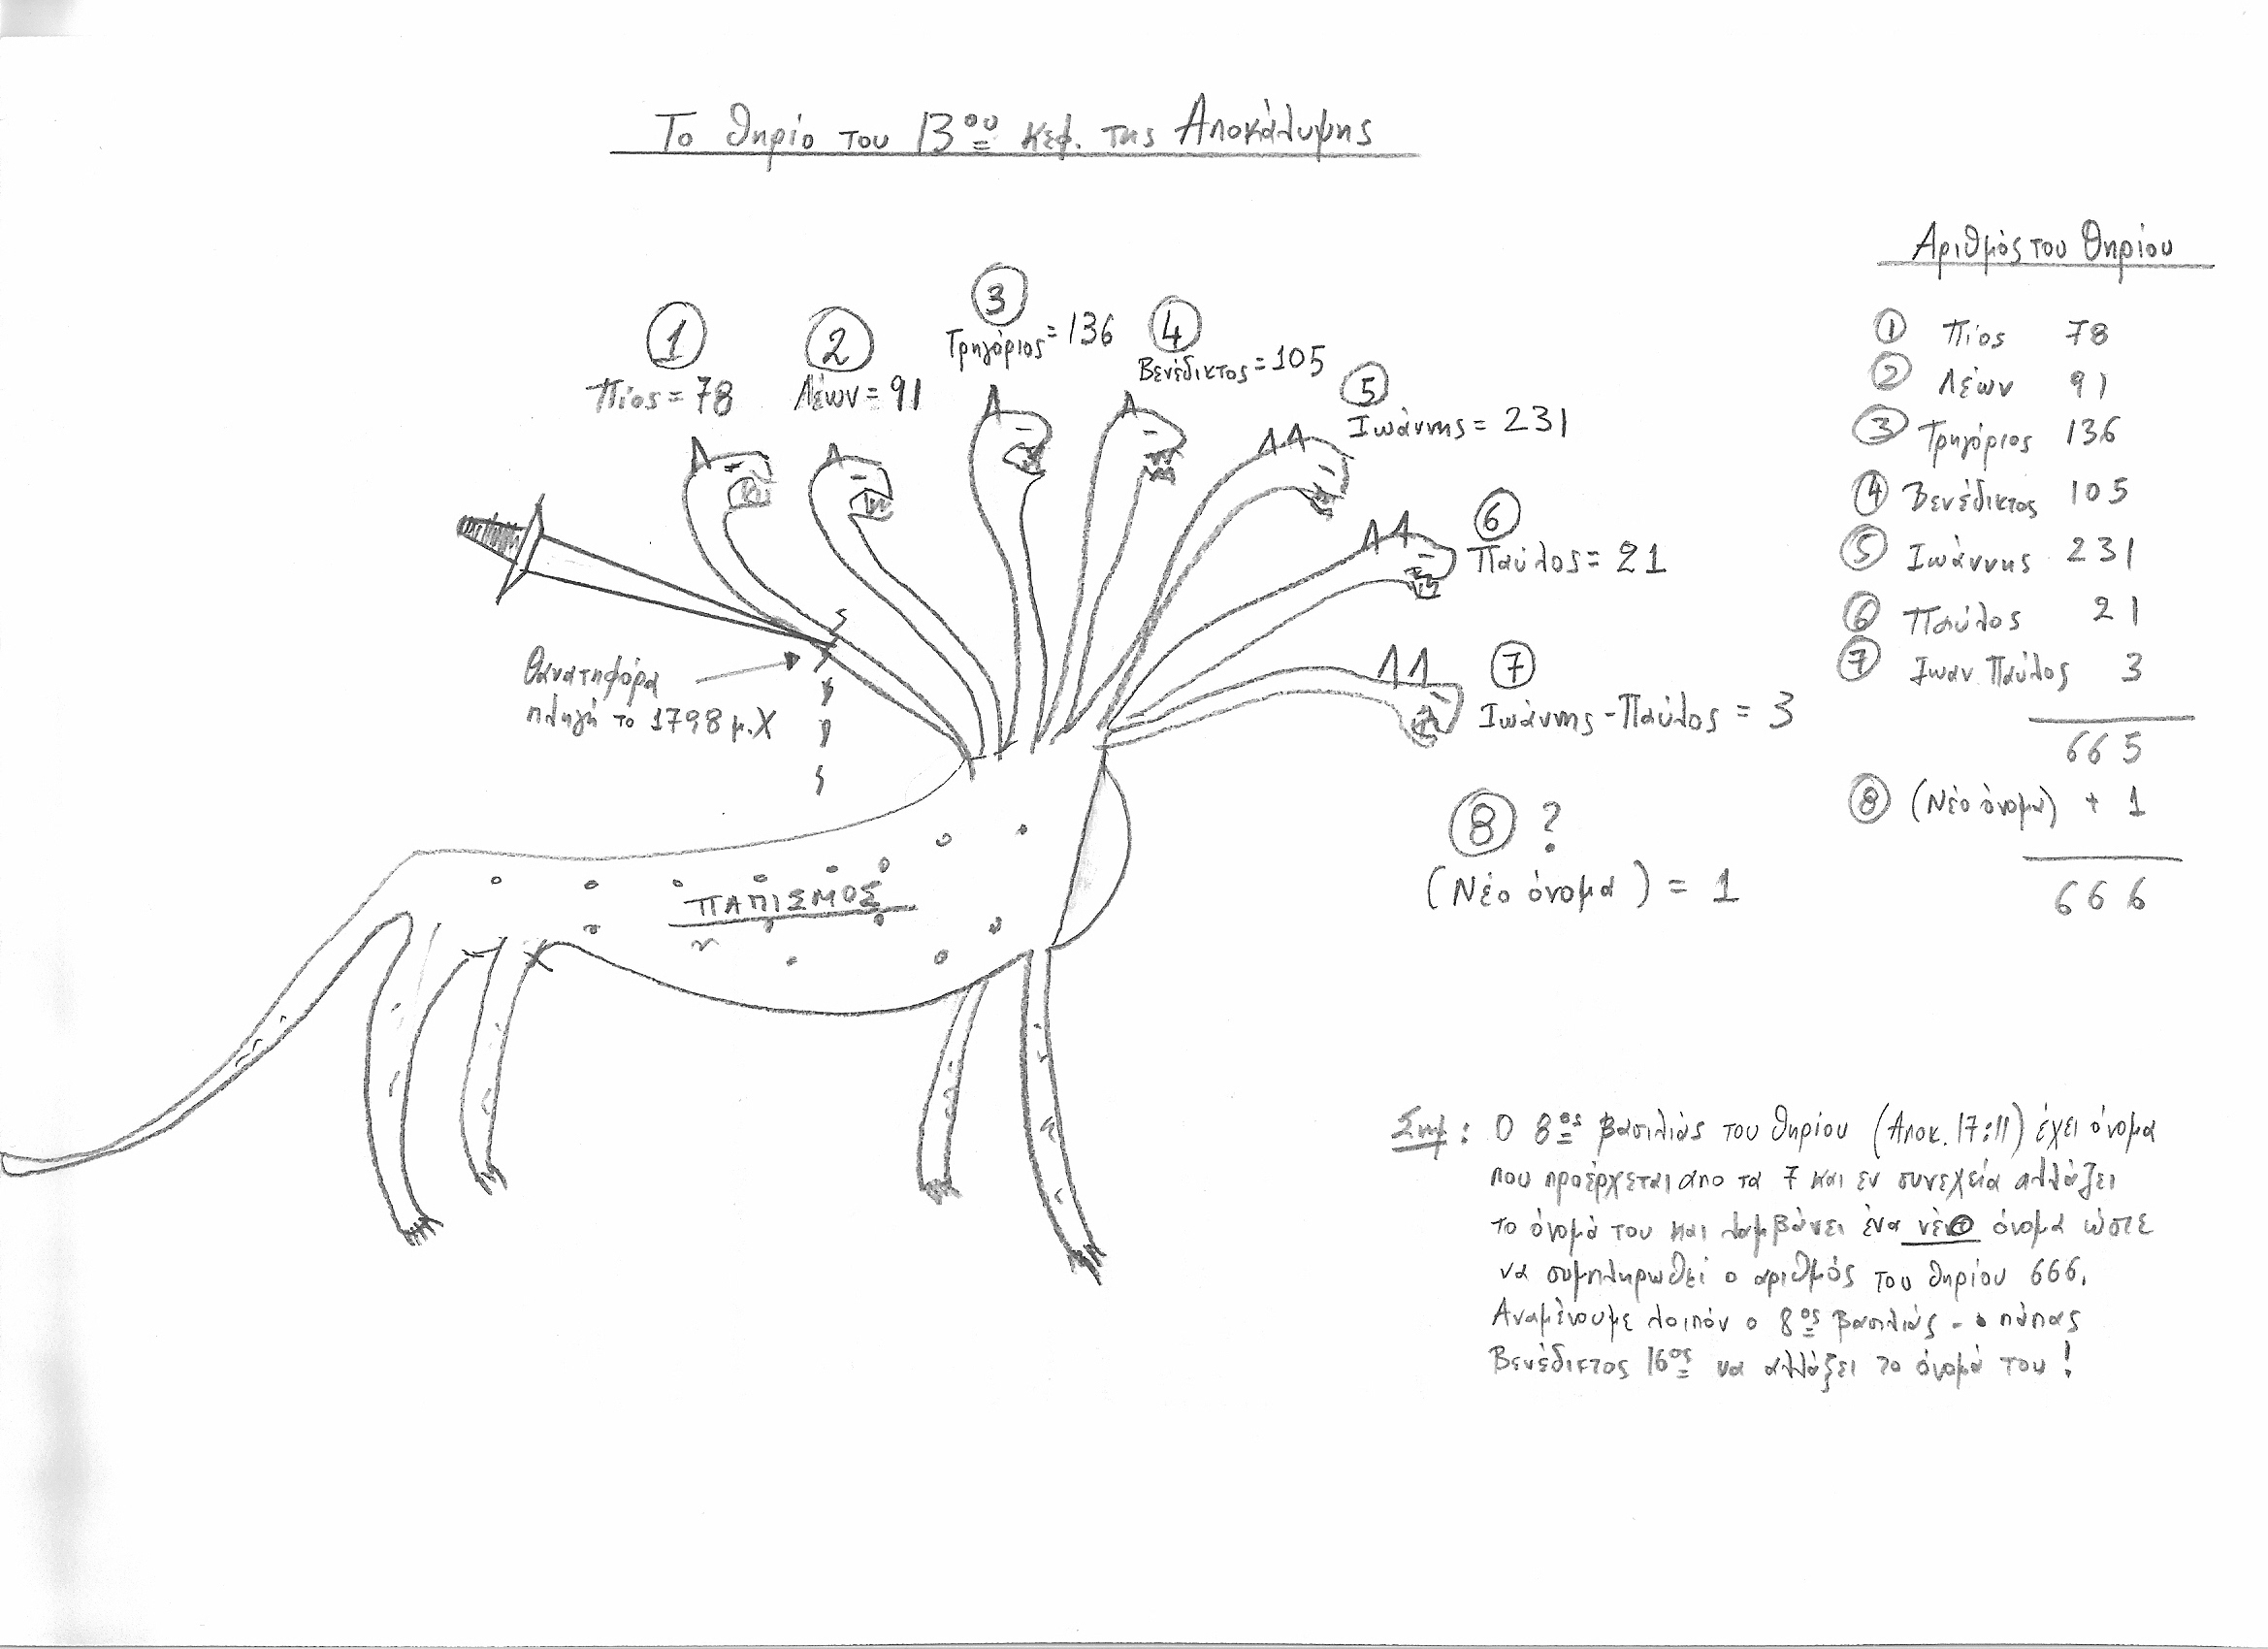 Το θηρίο του 13ου κεφ. της Αποκάλυψης
Αριθμός του θηρίου
1
Πίος = 78
2
Λέων = 91
3
Γρηγόριος = 136
4
Βενέδικτος = 105
5
Ιωάννης = 231
6
Παύλος = 21
7
Ιωάννης - Παύλος = 3
8 ?
(Νέο όνομα) = 1
θανατηφόρα
πληγή το 1798 μ.Χ
ΠΑΠΙΣΜΟΣ
1 Πίος 78
2 Λέων 91
3 Γρηγόριος 136
4 Βενέδικτος 105
5 Ιωάννης 231
6 Παύλος 21
7 Ιωαν. Παύλος 3
665
8 (Νέο όνομα) + 1
666
Σημ: Ο 8ος βασιλιάς του θηρίου (Αποκ. 17:11) έχει όνομα
που προέρχεται απο τα 7 και εν συνεχεία αλλάζει
το όνομά του και λαμβάνει ένα νέο όνομα ώστε
να συμπληρωθεί ο αριθμός του θηρίου 666.
Αναμένουμε λοιπόν ο 8ος βασιλιάς - ο πάπας
Βενέδικτος 16ος να αλλάξει το όνομά του!